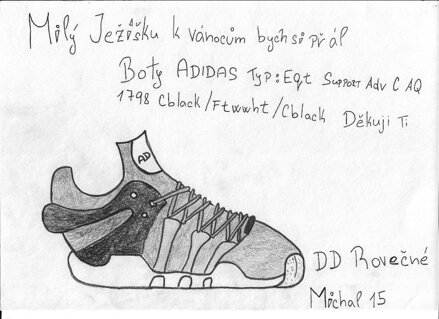 Milý Ježíšku k vánocům bych si přál
Boty ADIDAS Typ: Eqt Support Adv C AQ
1798 Cblack/Ftwwht/Cblack Děkuji Ti
AD
DD Rovečné
Michal 15